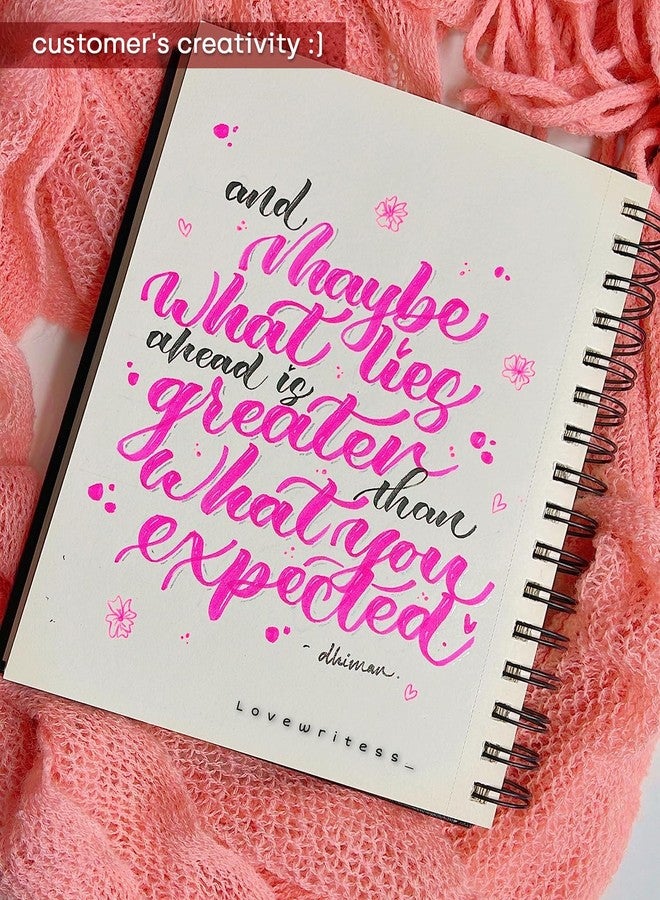 customer's creativity :)
and
Maybe
What lies
ahead is
greater
than
What you
expected
- dhiman.
Lovewritess_